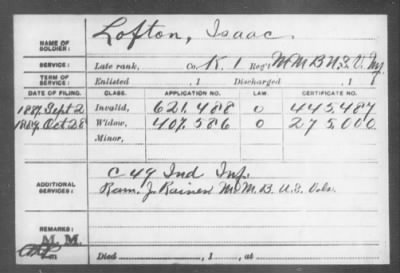 NAME OF SOLDIER: Lofton, Isaac.
SERVICE: Late rank, Co. K. 1 Reg't M M B U. S. V.
TERM OF SERVICE: Enlisted , 1 Discharged , 1
DATE OF FILING. CLASS. APPLICATION NO. LAW. CERTIFICATE NO.
1887. Sept. 2 Invalid, 621.488 0 445.487
Oct. 28 Widow, 407.586 0 275.000
Minor,
ADDITIONAL SERVICES: C 49 Ind Inf.
Ram. M. M. B. U.S. Vols.
REMARKS: M. M.
Died , 1 , at